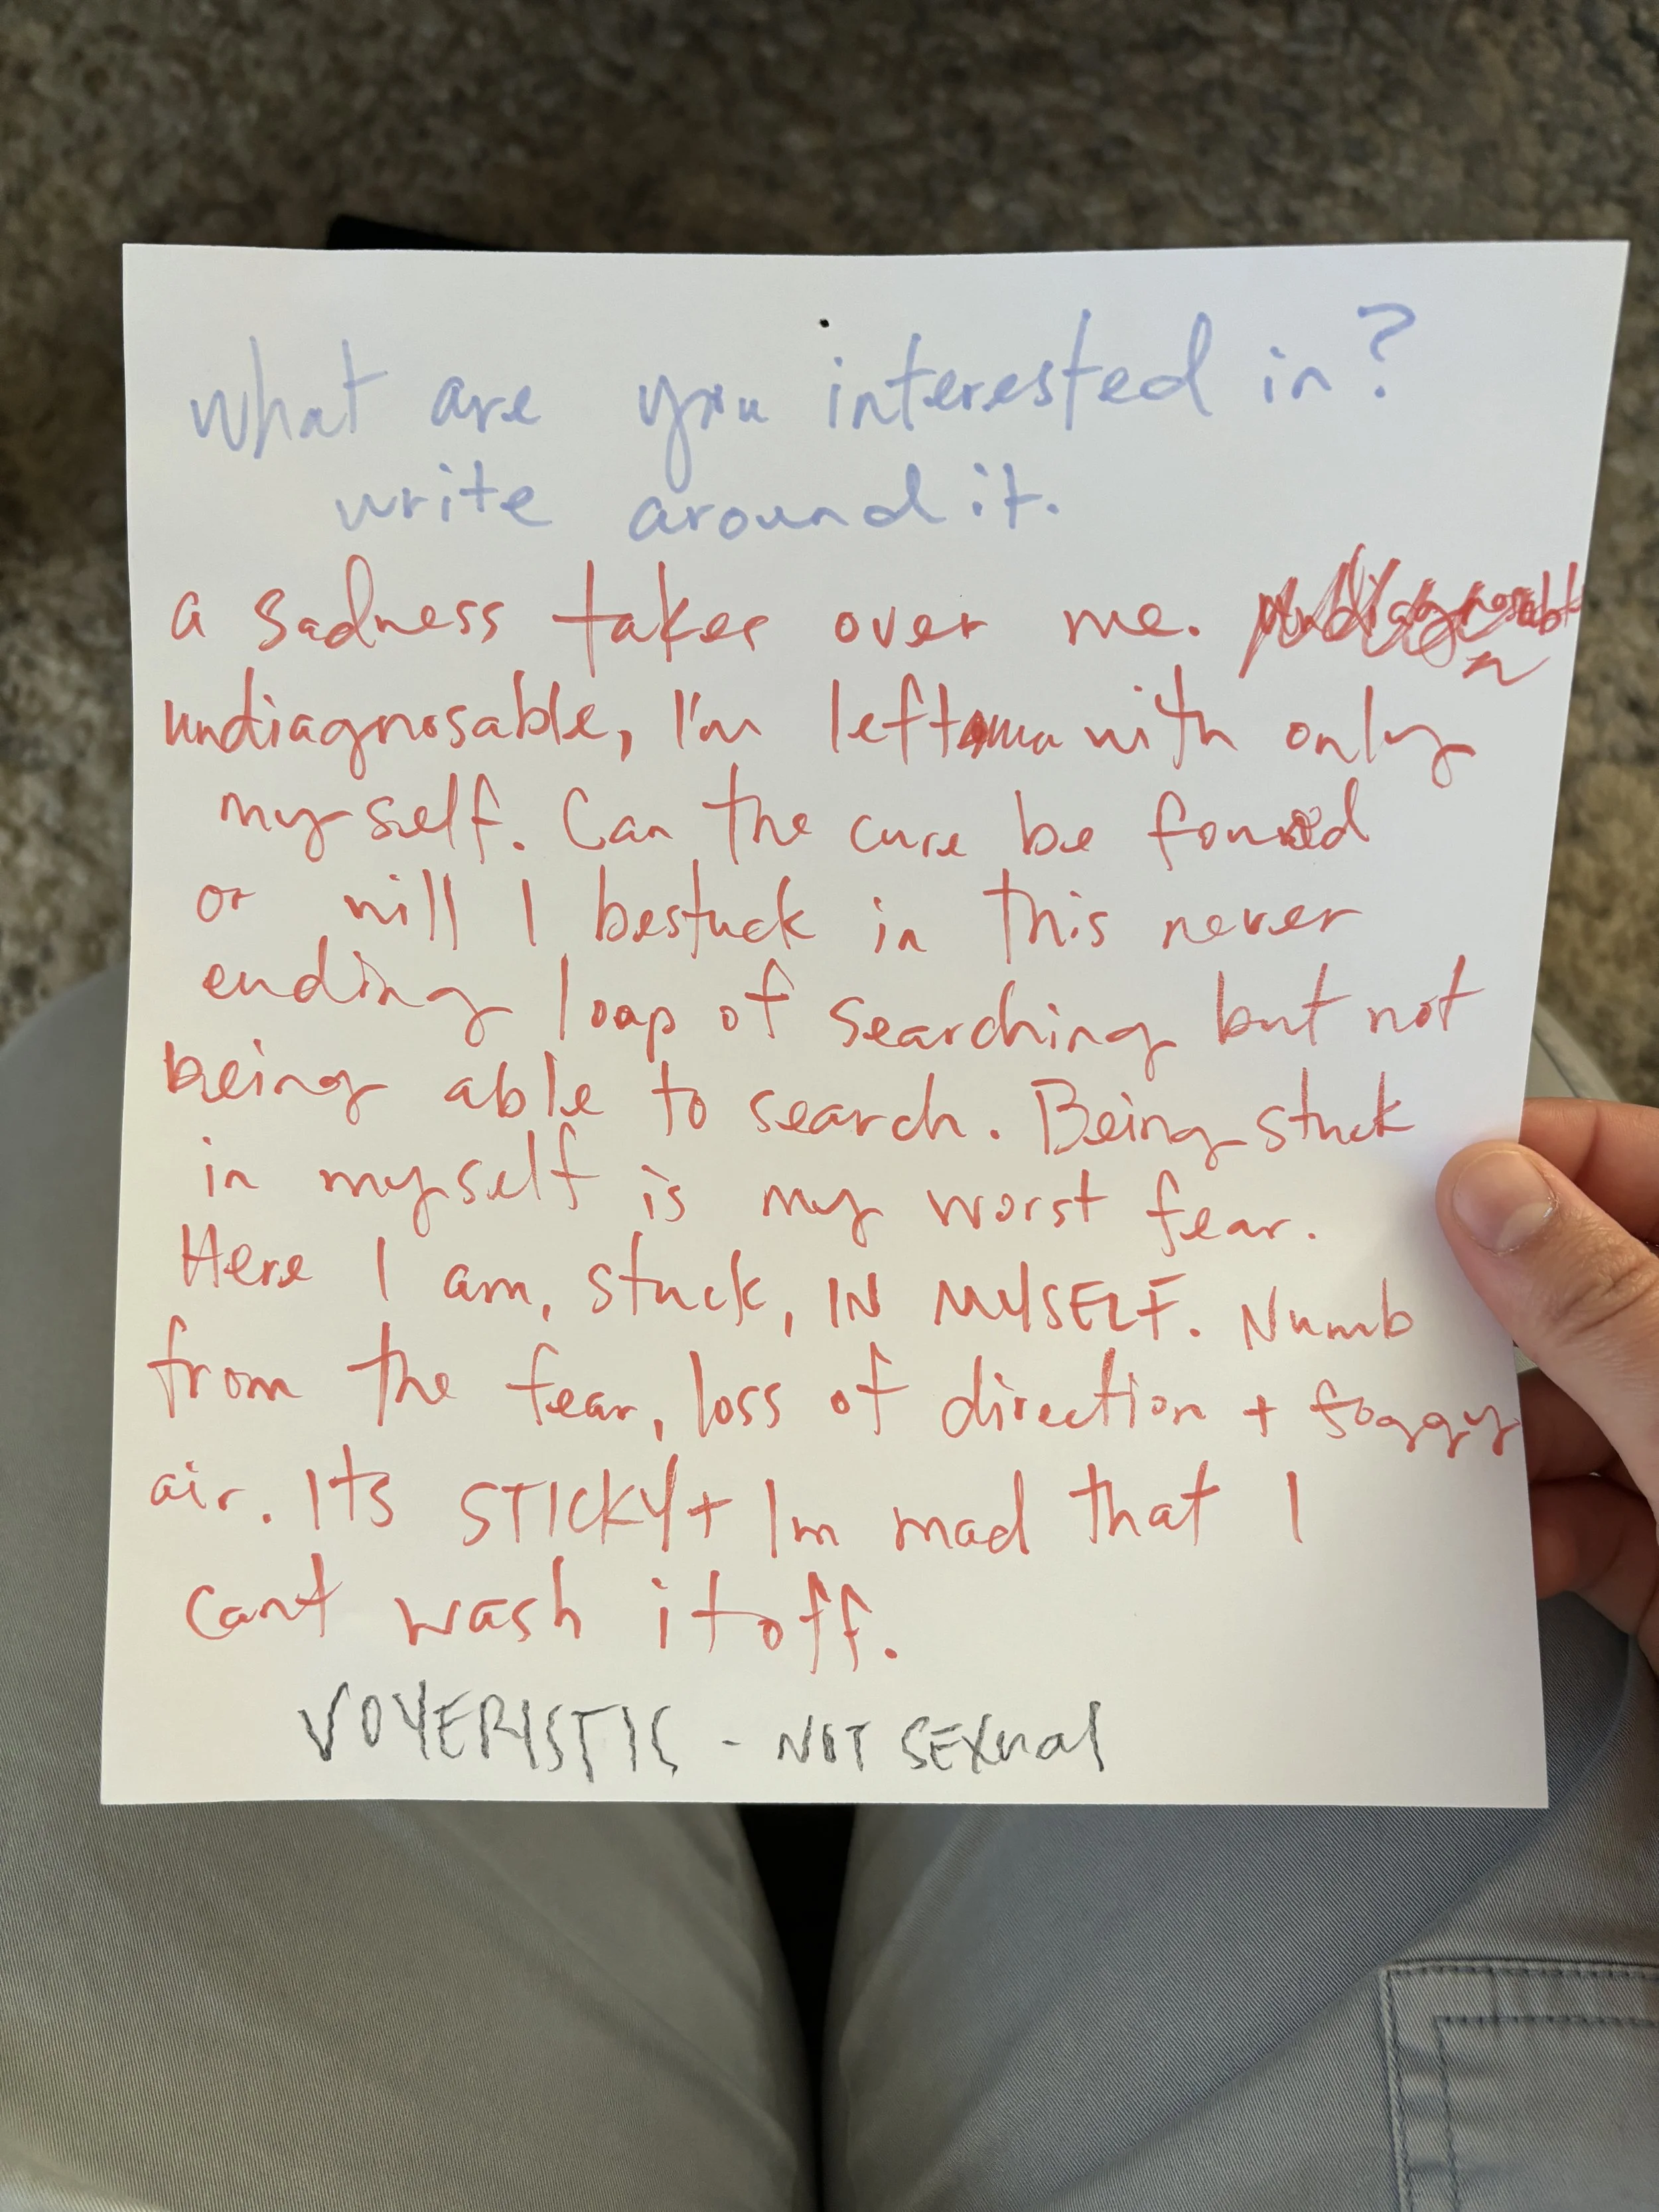 What are you interested in?
write around it.
a sadness takes over me. undiagnosabl
undiagnosable, I'm left with only
myself. Can the cure be found
or will I be stuck in this never
ending loop of searching but not
being able to search. Being stuck
in myself is my worst fear.
Here I am, stuck, IN MYSELF. Numb
from the fear, loss of direction + foggy
air. Its STICKY + Im mad that I
cant wash it off.
VOYERISTIC - NOT SEXUAL